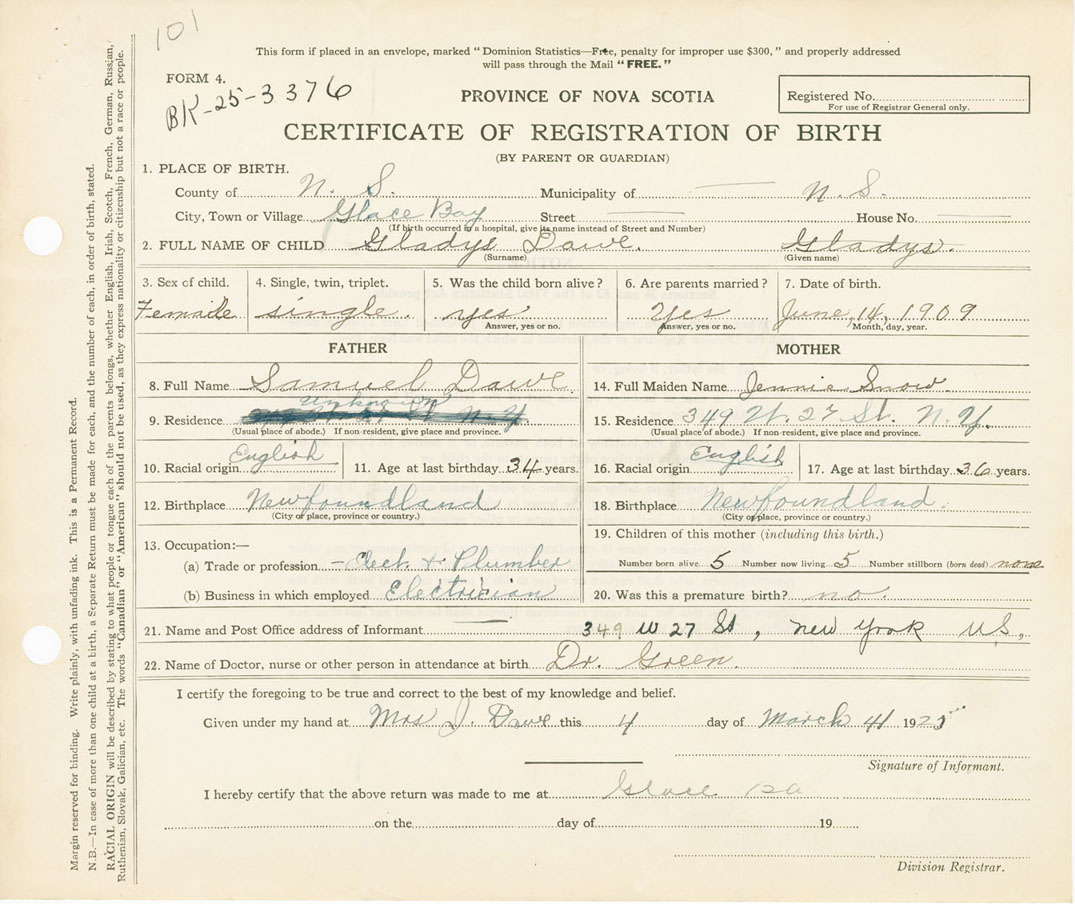 101
This form if placed in an envelope, marked "Dominion Statistics—Free, penalty for improper use $300," and properly addressed
will pass through the Mail "FREE."
FORM 4.
BK-25-3376
PROVINCE OF NOVA SCOTIA
Registered No.
For use of Registrar General only.
CERTIFICATE OF REGISTRATION OF BIRTH
(BY PARENT OR GUARDIAN)
1. PLACE OF BIRTH.
County of N. S. Municipality of — N. S.
City, Town or Village Glace Bay Street — House No. —
(If birth occurred in a hospital, give its name instead of Street and Number)
2. FULL NAME OF CHILD Gladys Dawe. Gladys.
(Surname) (Given name)
3. Sex of child. 4. Single, twin, triplet. 5. Was the child born alive? 6. Are parents married? 7. Date of birth.
Female single. yes Yes June, 14, 1909
Answer, yes or no. Answer, yes or no. Month, day, year.
FATHER MOTHER
8. Full Name Samuel Dawe 14. Full Maiden Name Jennie Snow.
9. Residence unknown N.Y. 15. Residence 349 W. 27 St. N.Y.
(Usual place of abode.) If non-resident, give place and province. (Usual place of abode.) If non-resident, give place and province.
10. Racial origin English 11. Age at last birthday 34 years. 16. Racial origin English 17. Age at last birthday 36 years.
12. Birthplace Newfoundland 18. Birthplace Newfoundland.
(City or place, province or country.) (City or place, province or country.)
13. Occupation:— 19. Children of this mother (including this birth.)
(a) Trade or profession – Elect. + Plumber Number born alive 5 Number now living 5 Number stillborn (born dead) none
(b) Business in which employed Electrician 20. Was this a premature birth? no.
21. Name and Post Office address of Informant — 349 W 27 St, New York U.S,
22. Name of Doctor, nurse or other person in attendance at birth Dr. Green.
I certify the foregoing to be true and correct to the best of my knowledge and belief.
Given under my hand at Mrs J. Dawe this 4 day of March 4 1925
Signature of Informant.
I hereby certify that the above return was made to me at Glace Ba
on the day of 19
Division Registrar.
Margin reserved for binding. Write plainly, with unfading ink. This is a Permanent Record.
N.B.—In case of more than one child at a birth, a Separate Return must be made for each, and the number of each, in order of birth, stated.
RACIAL ORIGIN will be described by stating to what people or tongue each of the parents belongs, whether English, Irish, Scotch, French, German, Russian,
Ruthenian, Slovak, Galician, etc. The words "Canadian" or "American" should not be used, as they express nationality or citizenship but not a race or people.